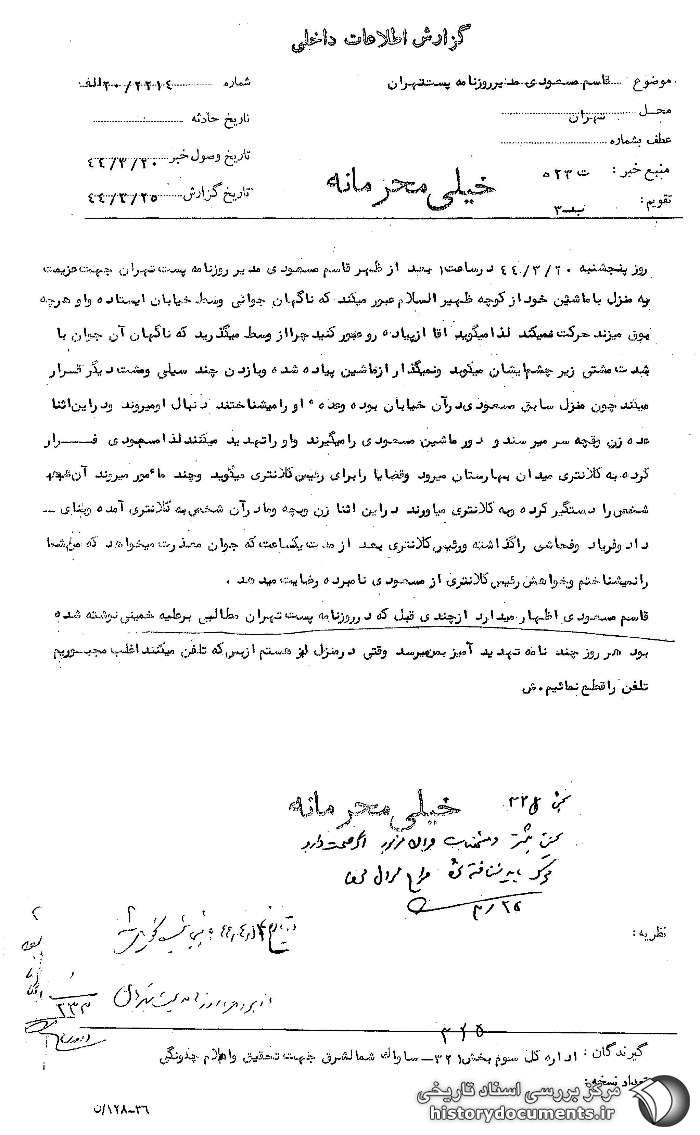 گزارش اطلاعات داخلی
موضوع قاسم مسعودی مدیر روزنامه پست تهران
شماره ۲۰/۲۲۱٤ الف
محل تهران
تاریخ حادثه
عطف بشماره
تاریخ وصول خبر ۴۴/۳/۲۰
منبع خبر : ت ۵۲۳
تاریخ گزارش ۴۴/۳/۲۵
تقویم : ب-۳
خیلی محرمانه
روز پنجشنبه ۴۴/۳/۲۰ در ساعت ۱ بعد از ظهر قاسم مسعودی مدیر روزنامه پست تهران جهت عزیمت
به منزل با ماشین خود از کوچه ظهیر السلام عبور میکند که ناگهان جوانی وسط خیابان ایستاده و او هرچه
بوق میزند حرکت نمیکند لذا میگوید اقا از پیاده رو عبور کنید چرا از وسط میگذرید که ناگهان آن جوان با
شدت مشتی زیر چشم ایشان میکوبد و نمیگذار از ماشین پیاده شده و بازدن چند سیلی و مشت دیگر فرار
میکند چون منزل سابق مسعودی در آن خیابان بوده و عده ه او را میشناختند دنبال او میروند و در این اثنا
عده زن و بچه سر میرسند و دور ماشین مسعودی را میگیرند و او را تهدید میکنند لذا مسعودی فــرار
کرده به کلانتری میدان بهارستان میرود و قضایا را برای رئیس کلانتری میگوید و چند مأمور میروند آن
شخص را دستگیر کرده و به کلانتری میاورند در این اثنا زن و بچه و مادر آن شخص به کلانتری آمده و بنای ــ
داد و فریاد و فحاشی را گذاشته و رئیس کلانتری بعد از مدت یکساعت که جوان معذرت میخواهد که من شما
را نمیشناختم و خواهش رئیس کلانتری از مسعودی نامبرده رضایت میدهد .
قاسم مسعودی اظهار میدارد از چندی قبل که در روزنامه پست تهران مطالبی بر علیه خمینی نوشته شده
بود هر روز چند نامه تهدید آمیز بمن میرسد وقتی در منزل نیز هستم از بس که تلفن میکنند اغلب مجبوریم
تلفن را قطع نمائیم . ش
خیلی محرمانه
۳/۲۵
نظریه :
۲۳۳
۳۲۵
گیرندگان : اداره کل سوم بخش ۳۲۱ – ساواک شمالشرق جهت تحقیق و اعلام چگونگی
تعداد نسخه :
۳۶-۱۲۸/ن
مرکز بررسی اسناد تاریخی
historydocuments.ir